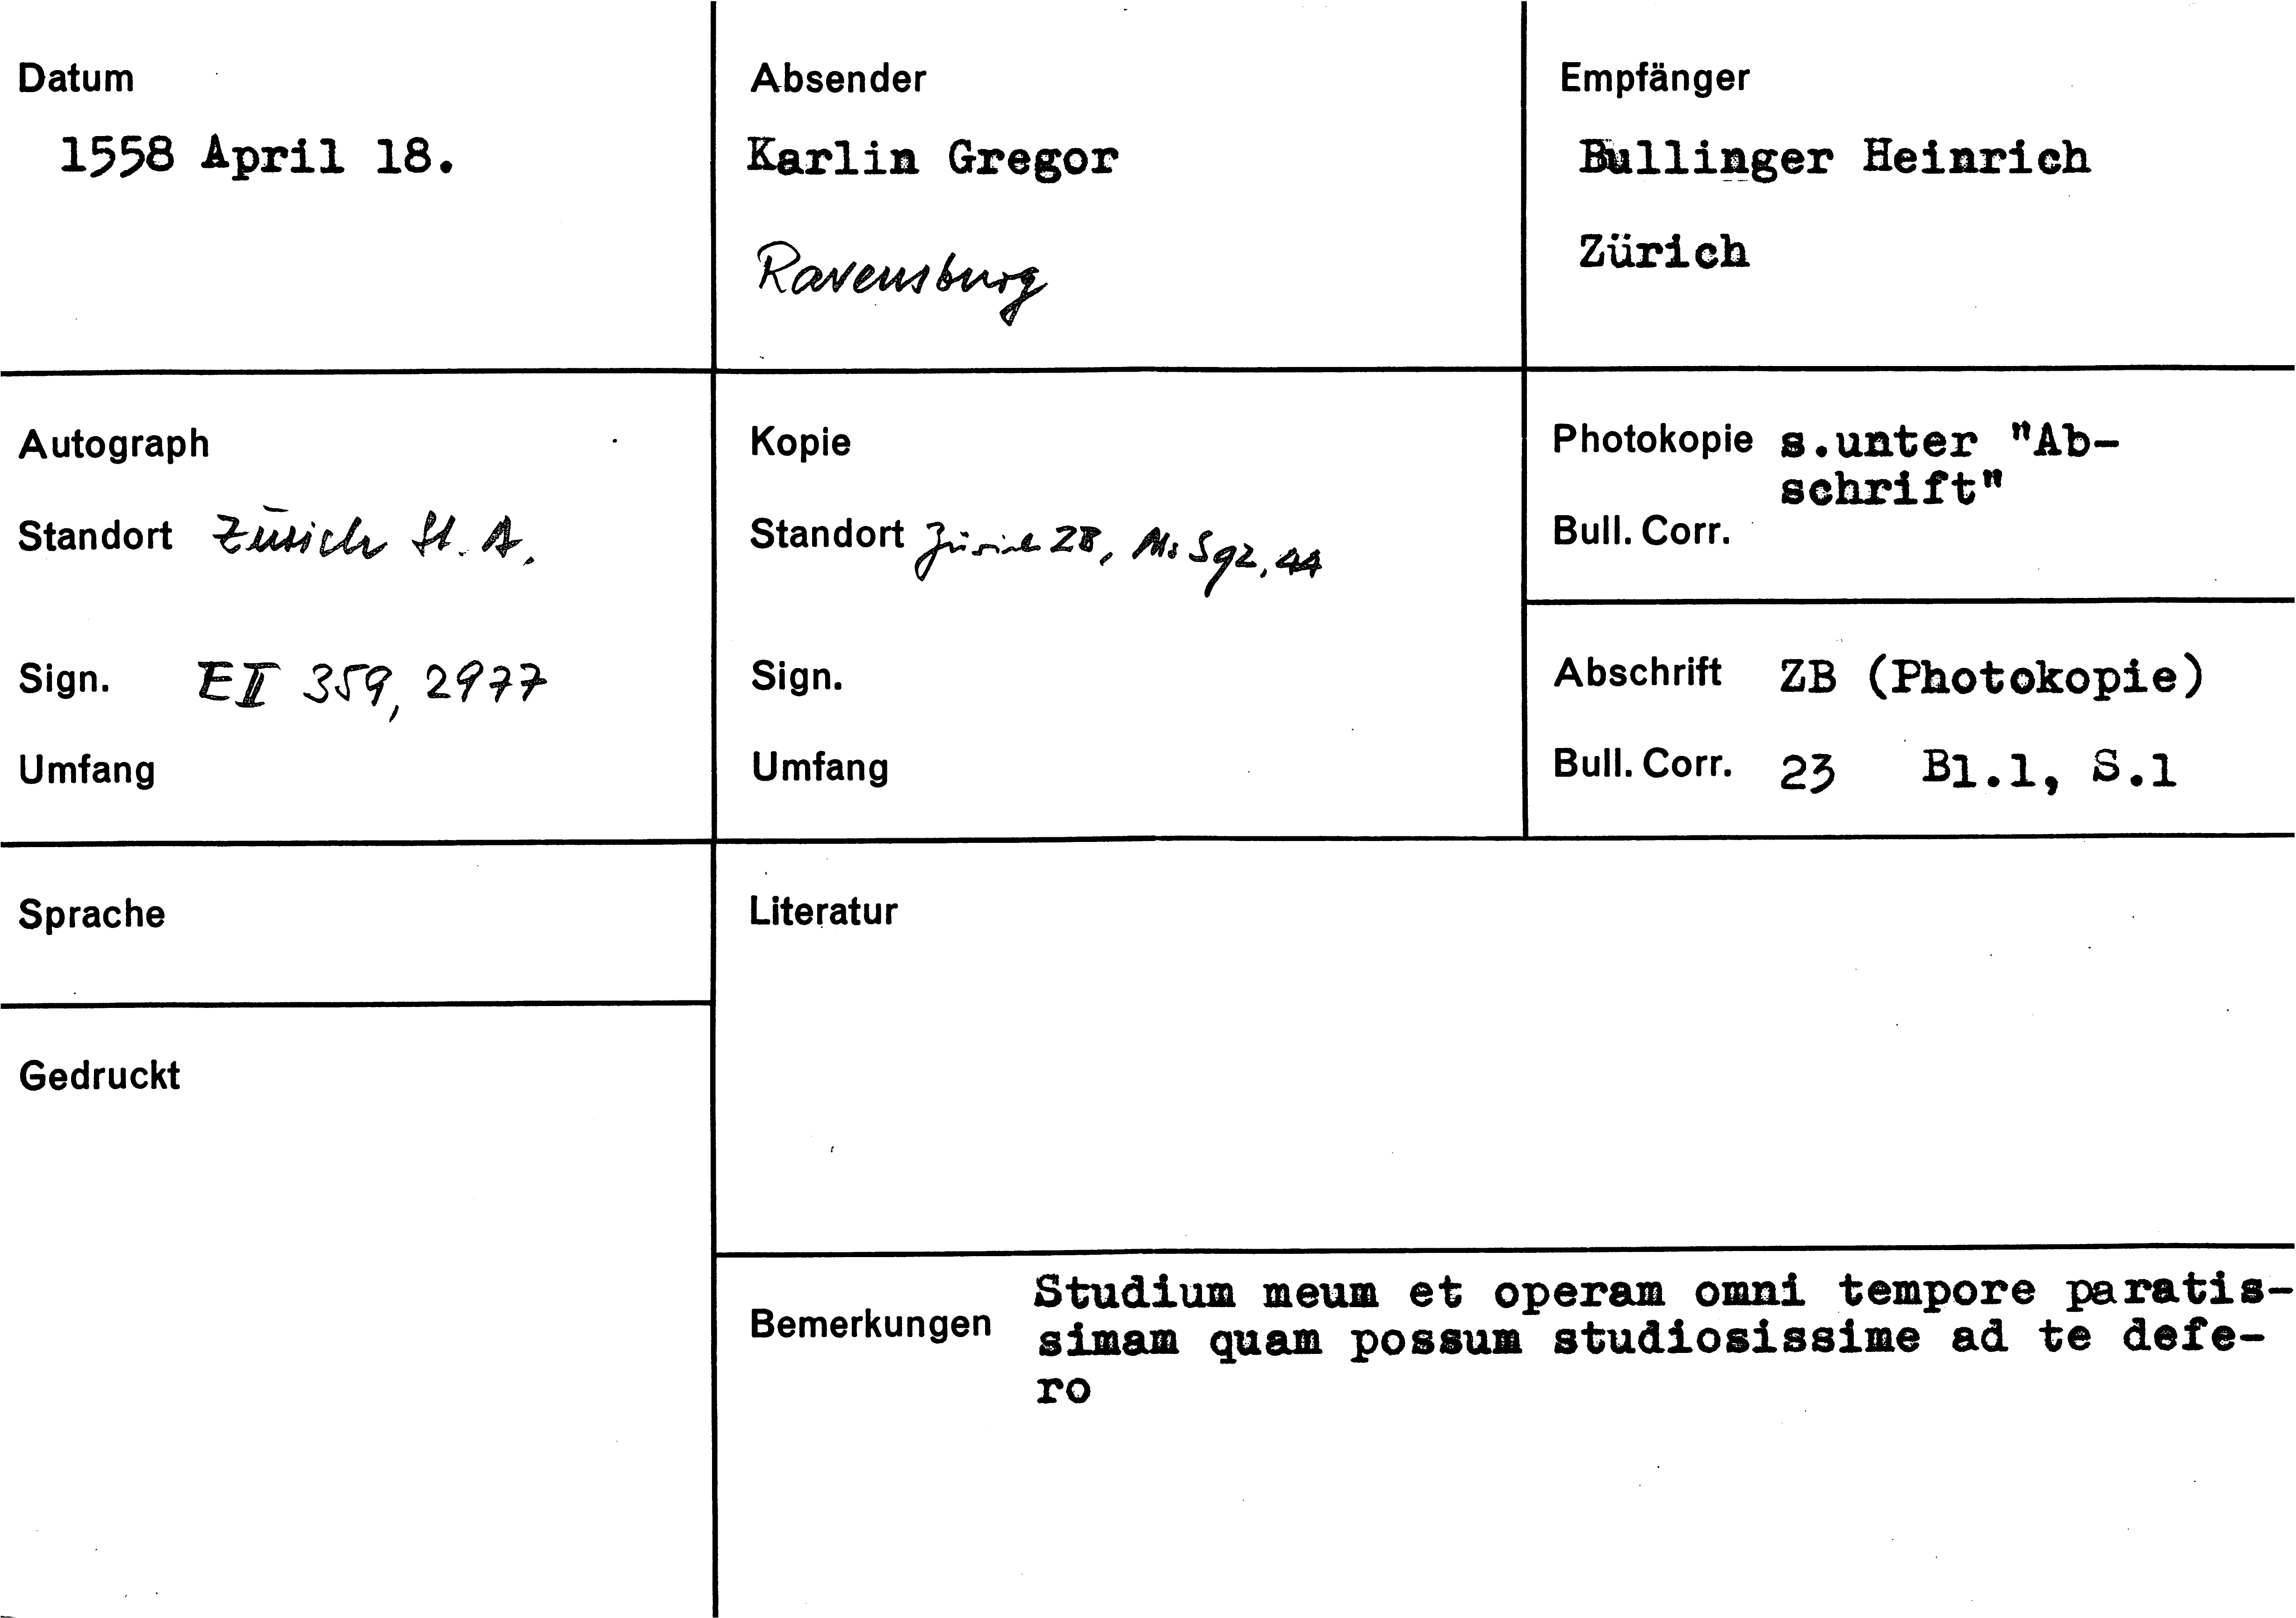 Datum
1558 April 18.
Absender
Karlin Gregor
Ravensburg
Empfänger
Bullinger Heinrich
Zürich
Autograph
Standort Zürich St. A.
Sign. E II 359, 2977
Umfang
Kopie
Standort Zürich ZB, Ms S 92, 44
Sign.
Umfang
Photokopie s.unter "Ab-
schrift"
Bull. Corr.
Abschrift ZB (Photokopie)
Bull. Corr. 23 Bl.1, S.1
Sprache
Gedruckt
Literatur
Bemerkungen Studium meum et operam omni tempore paratis-
simam quam possum studiosissime ad te defe-
ro